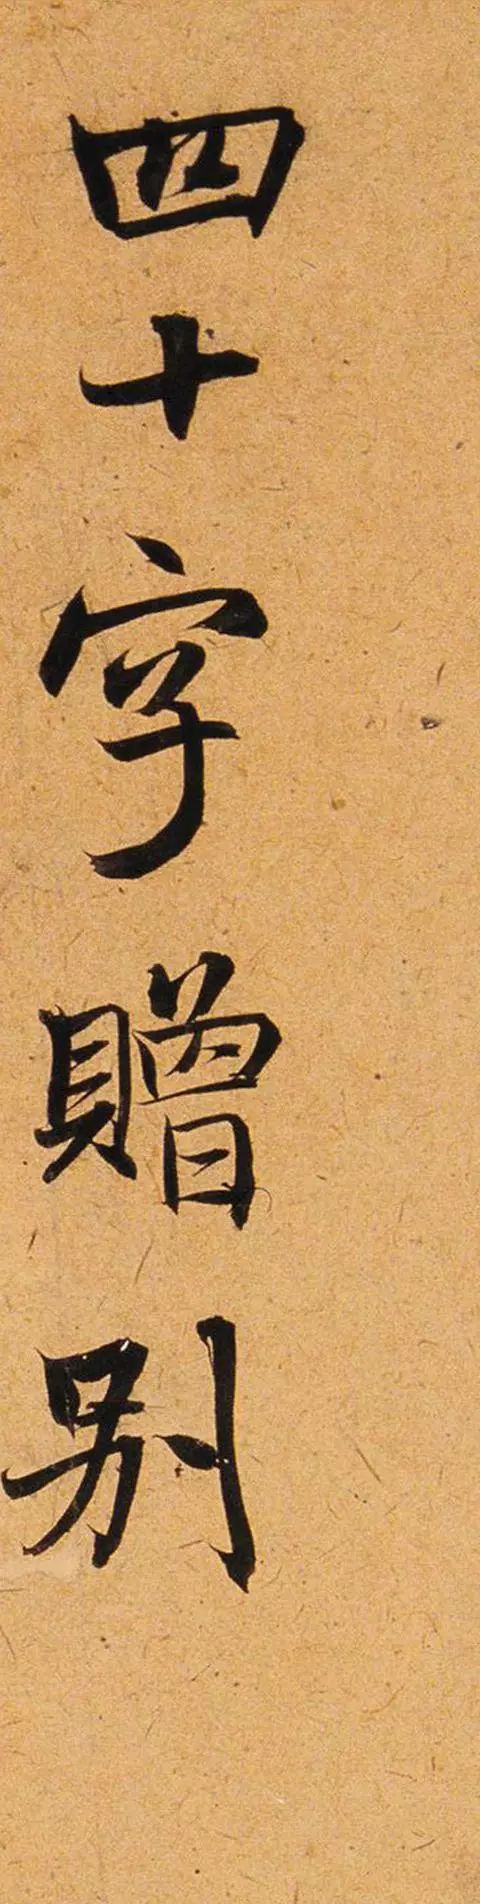 四十字贈别